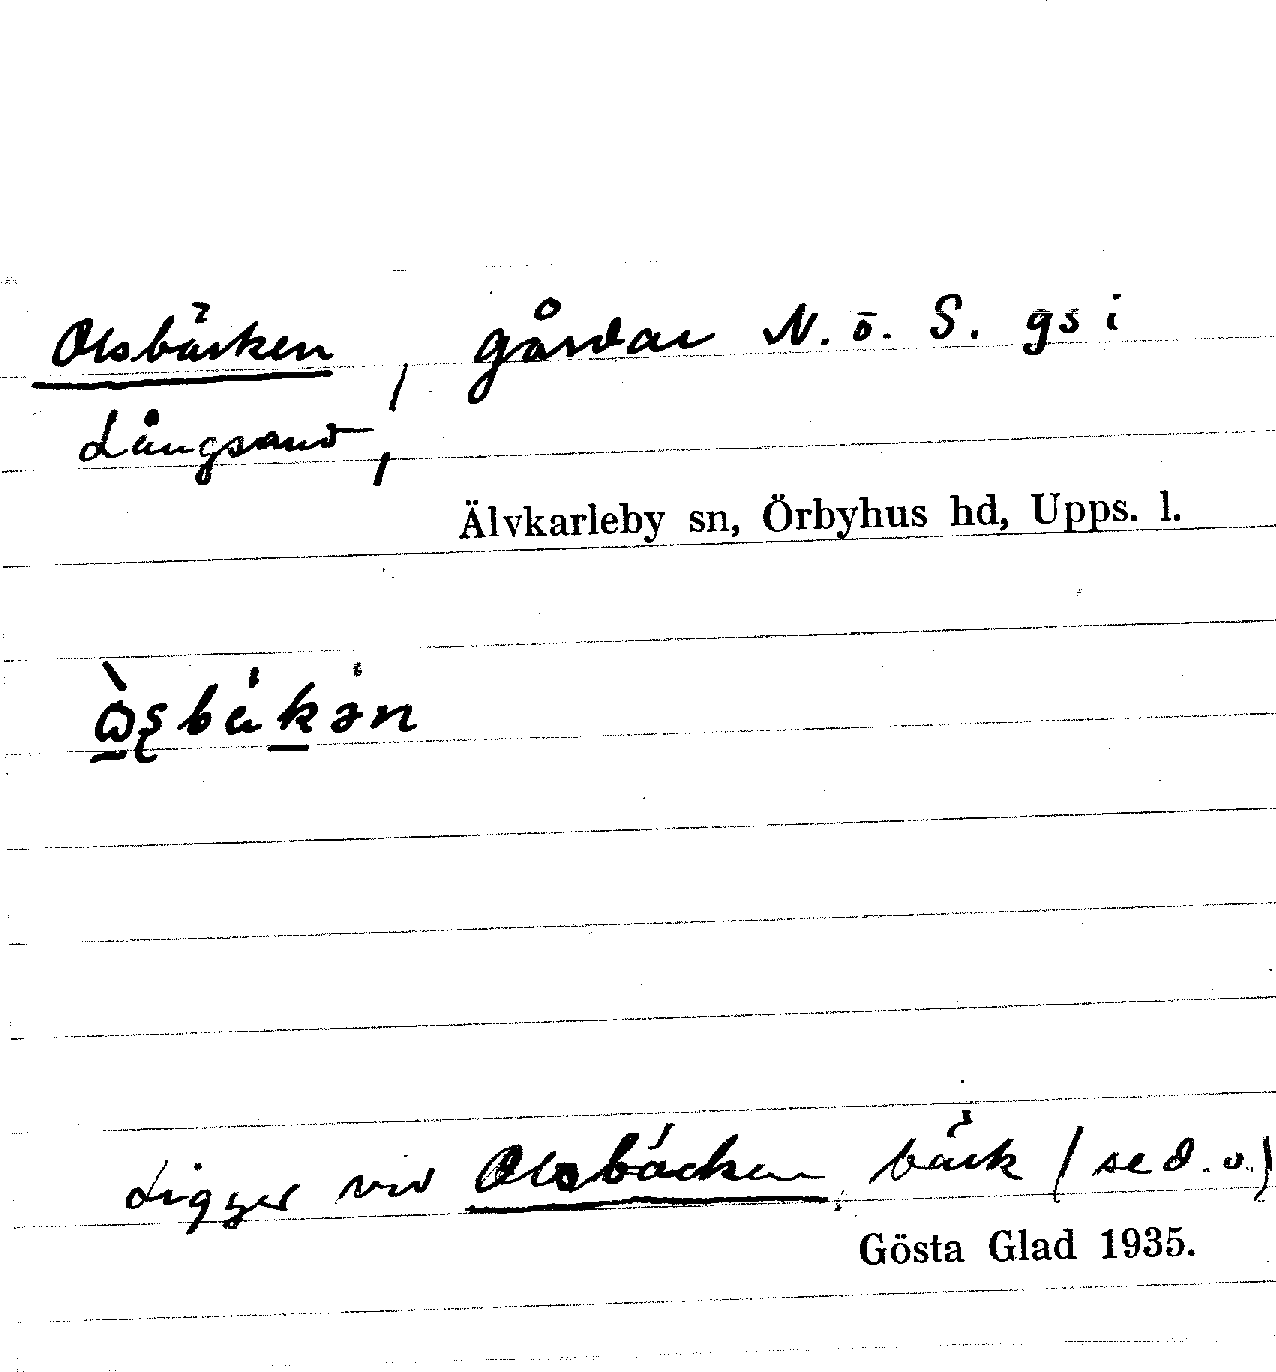 Olsbäcken, gårdar N. ö. S. gs i
Långsand,
Älvkarleby sn, Örbyhus hd, Upps. l.
Ligger vid Olsbäcken, bäck (se d. o.)
Gösta Glad 1935.